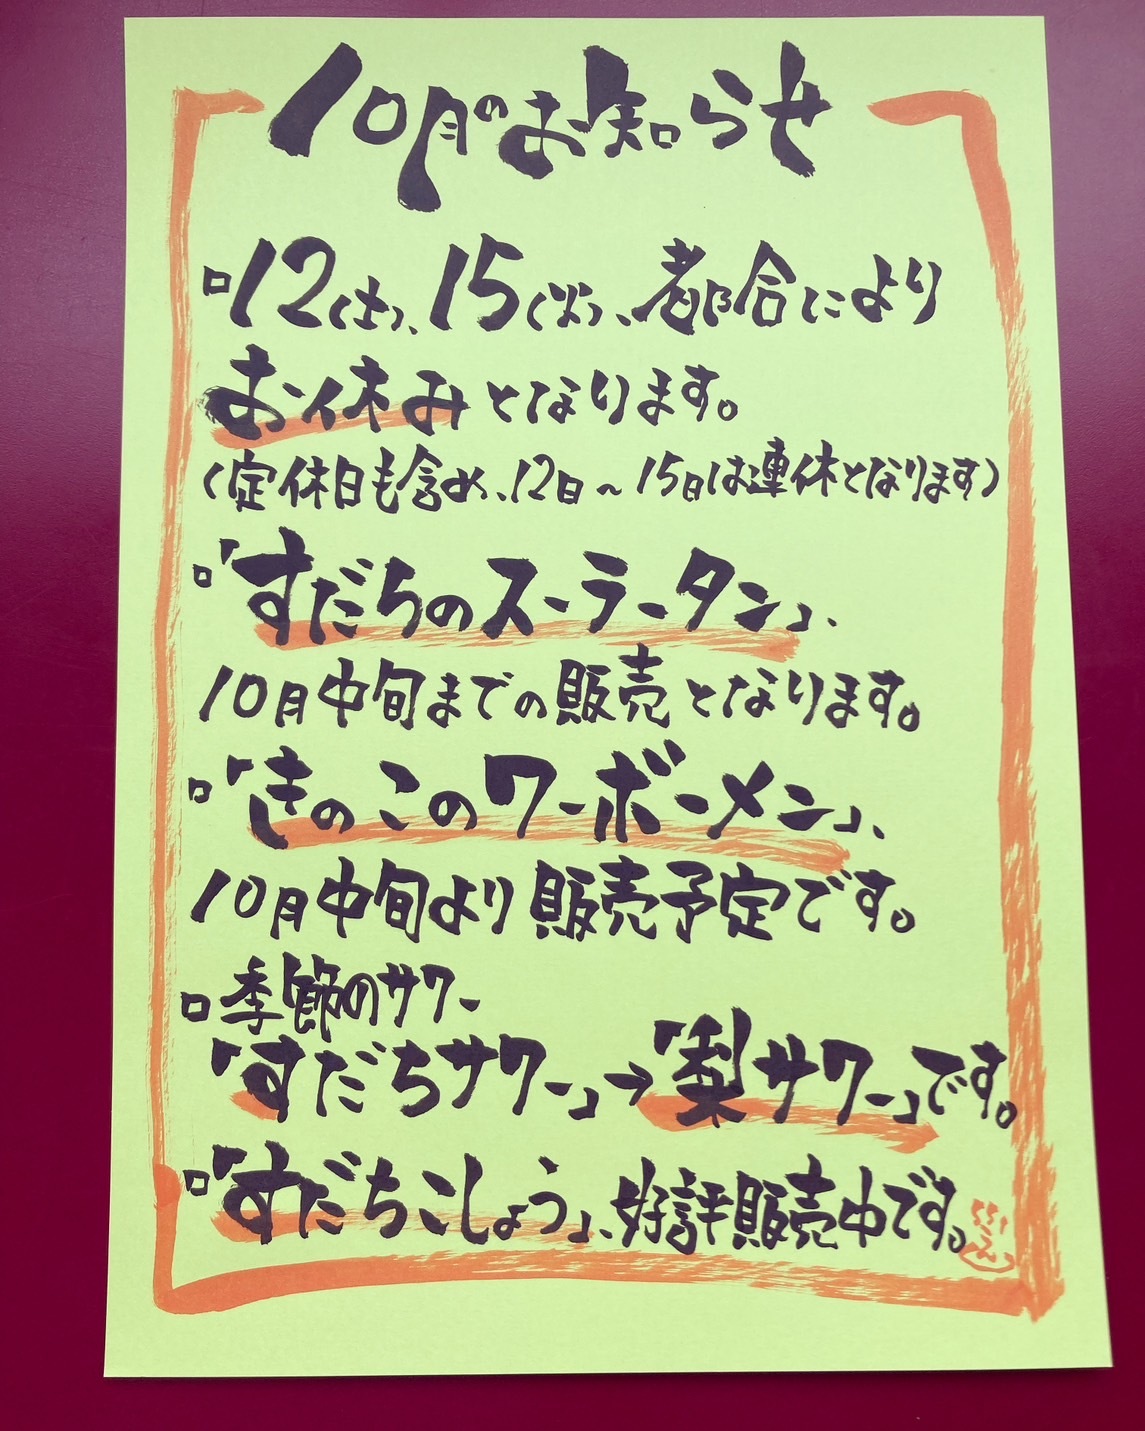 10月のお知らせ
□12(土)、15(火)、都合により
お休みとなります。
(定休日も含め、12日~15日は連休となります)
□「すだちのスーラータン」、
10月中旬までの販売となります。
□「きのこのワーボーメン」、
10月中旬より販売予定です。
□季節のサワー
「すだちサワー」→「梨サワー」です。
□「すだちこしょう」、好評販売中です。